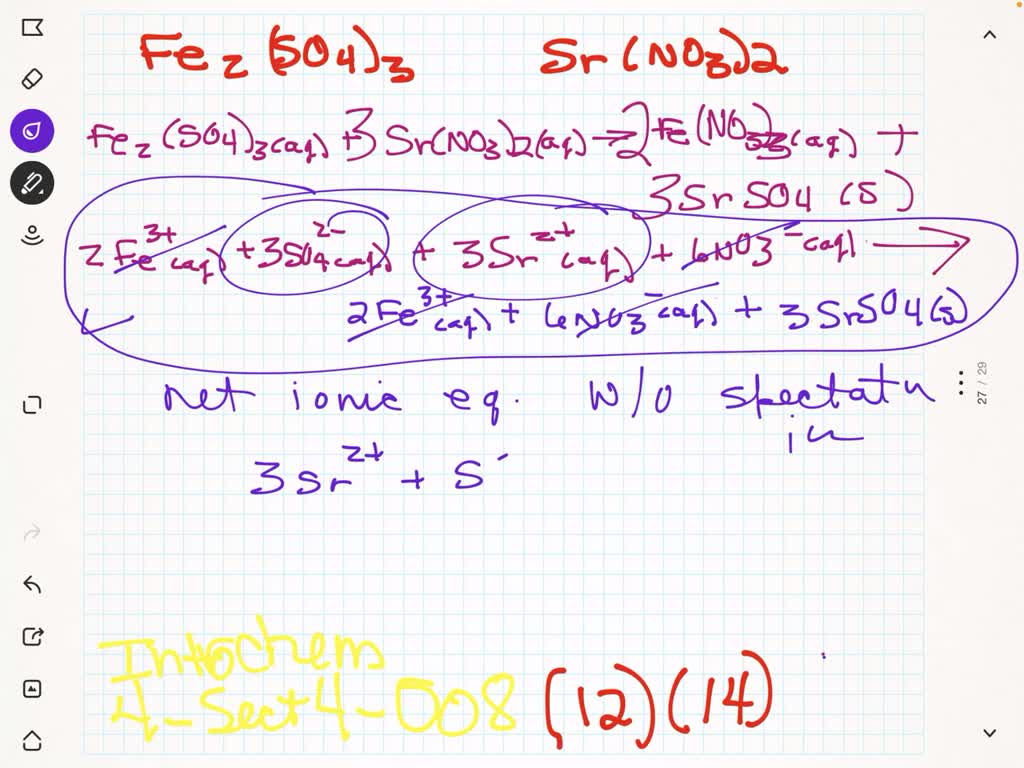 Fe2(SO4)3 Sr(NO3)2
Fe2(SO4)3(aq) + 3Sr(NO3)2(aq) → 2Fe(NO3)3(aq) +
3SrSO4(s)
2Fe³⁺(aq) + 3SO4²⁻(aq) + 3Sr²⁺(aq) + 6NO3⁻(aq) →
2Fe³⁺(aq) + 6NO3⁻(aq) + 3SrSO4(s)
net ionic eq. w/o
3Sr²⁺ + S
27 / 29
Intochem
4-Sect4-008 (12)(14)